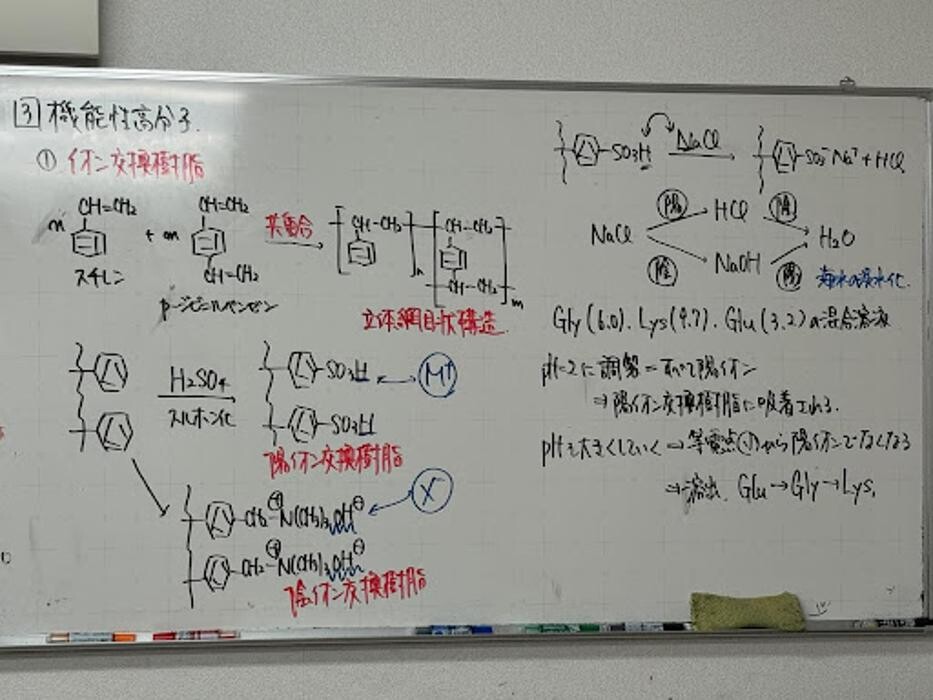 3 機能性高分子.
① イオン交換樹脂
n CH=CH2 + m CH=CH2 CH=CH2 共重合 → [CH-CH2]n [CH-CH2 CH-CH2]m
スチレン
p-ジビニルベンゼン
立体網目状構造.
H2SO4
スルホン化
-SO3H ↔ M+
-SO3H
陽イオン交換樹脂
-CH2-⊕N(CH3)3OH⊖ ← X-
-CH2-⊕N(CH3)3OH⊖
陰イオン交換樹脂
-SO3H NaCl → -SO3-Na+ + HCl
NaCl
陽 HCl 陰
陰 NaOH 陽
H2O
海水の淡水化
Gly(6.0). Lys(9.7). Glu(3.2)の混合溶液
pH=2に調製=すべて陽イオン
⇒陽イオン交換樹脂に吸着される.
pHを大きくしていく⇒等電点(小)から陽イオンでなくなる
⇒溶出 Glu→Gly→Lys.